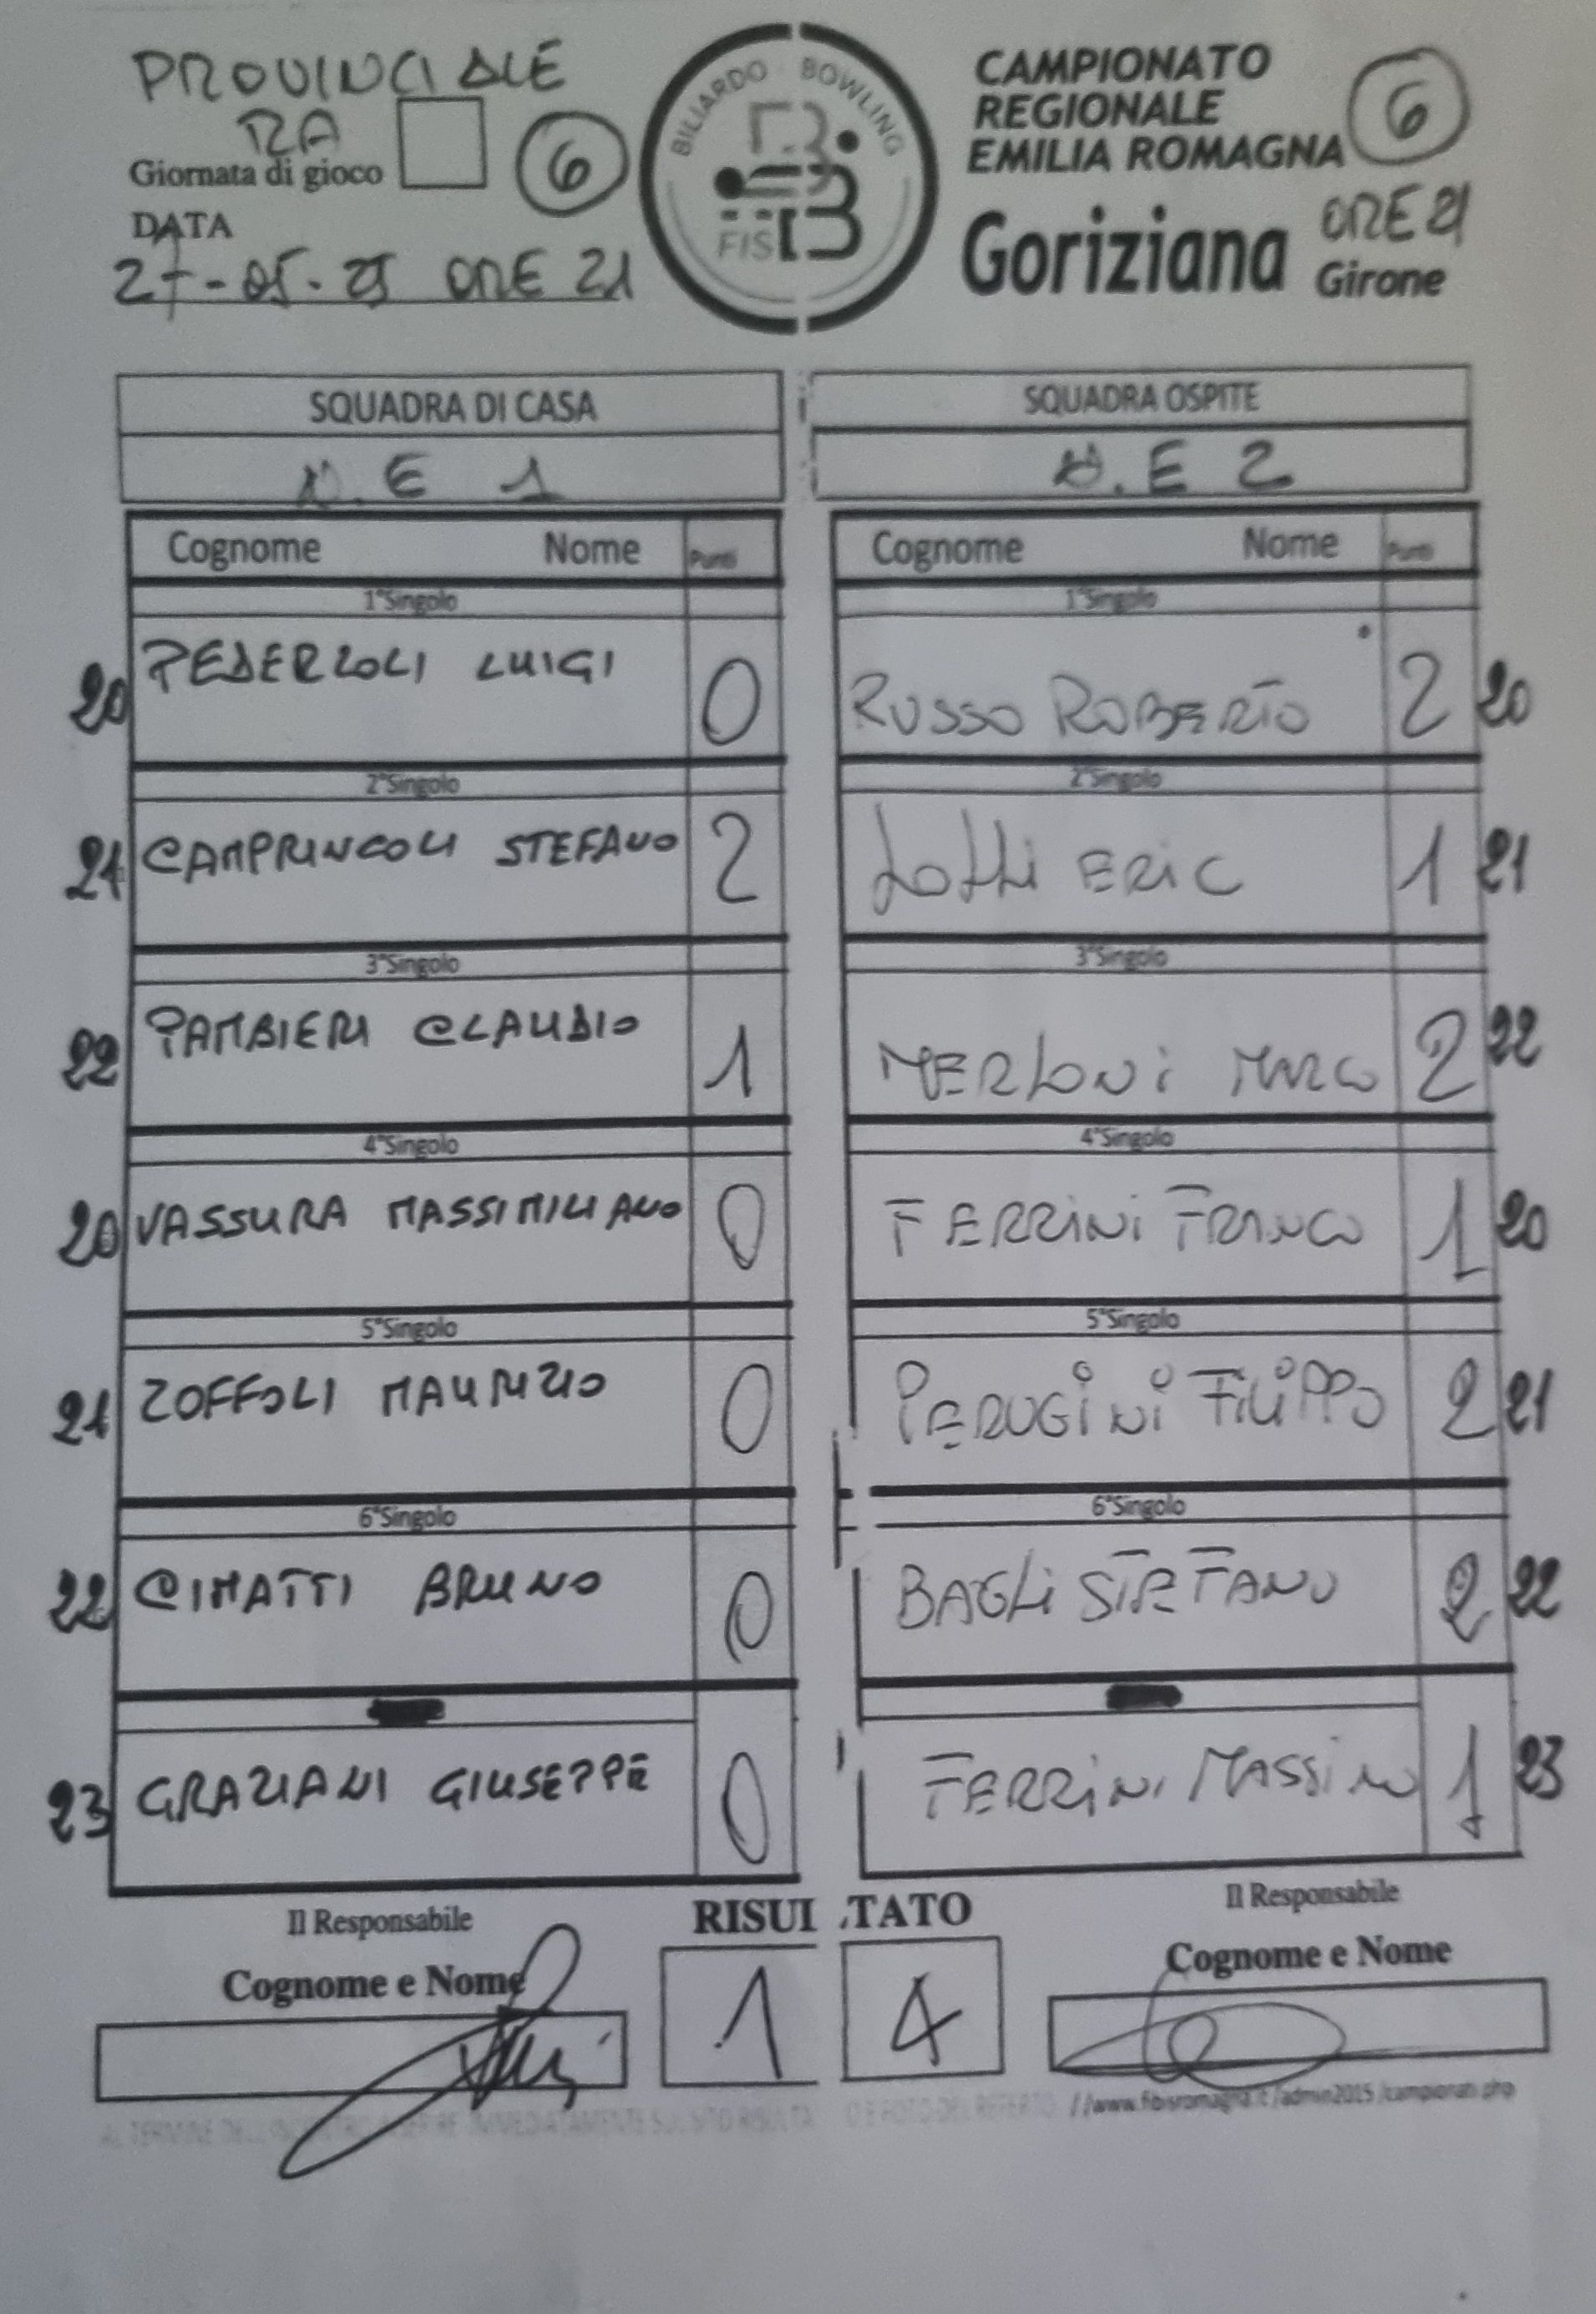 PROVINCIALE
RA
Giornata di gioco 6
DATA
27-05-25 ORE 21
BILIARDO BOWLING
FIS
CAMPIONATO
REGIONALE
EMILIA ROMAGNA 6
Goriziana ORE 21
Girone
SQUADRA DI CASA SQUADRA OSPITE
N.E 1 N.E 2
Cognome Nome Punti Cognome Nome Punti
1°Singolo 1°Singolo
20 PEDERZOLI LUIGI 0 RUSSO ROBERTO 2 20
2°Singolo 2°Singolo
21 CAMPRINCOLI STEFANO 2 LOLLI ERIC 1 21
3°Singolo 3°Singolo
22 PAMBIERI CLAUDIO 1 MERLONI MARCO 2 22
4°Singolo 4°Singolo
20 VASSURA MASSIMILIANO 0 FERRINI FRANCO 1 20
5°Singolo 5°Singolo
21 ZOFFOLI MAURIZIO 0 PERUGINI FILIPPO 2 21
6°Singolo 6°Singolo
22 CIMATTI BRUNO 0 BAGLI STEFANO 2 22
23 GRAZIANI GIUSEPPE 0 FERRINI MASSIMO 1 23
Il Responsabile RISUI TATO Il Responsabile
Cognome e Nome 1 4 Cognome e Nome
//www.fibisromagna.it/admin2015/campionati.php